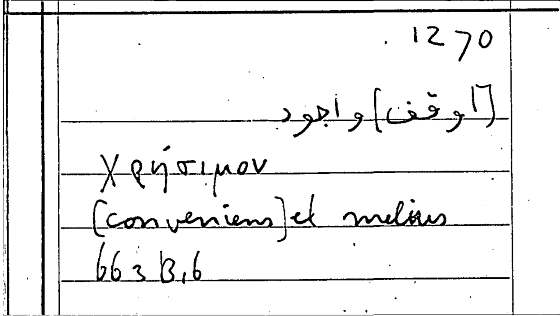 1270
[اوفق] واجود
χρήσιμον
[conveniens] et melius
663 B,6